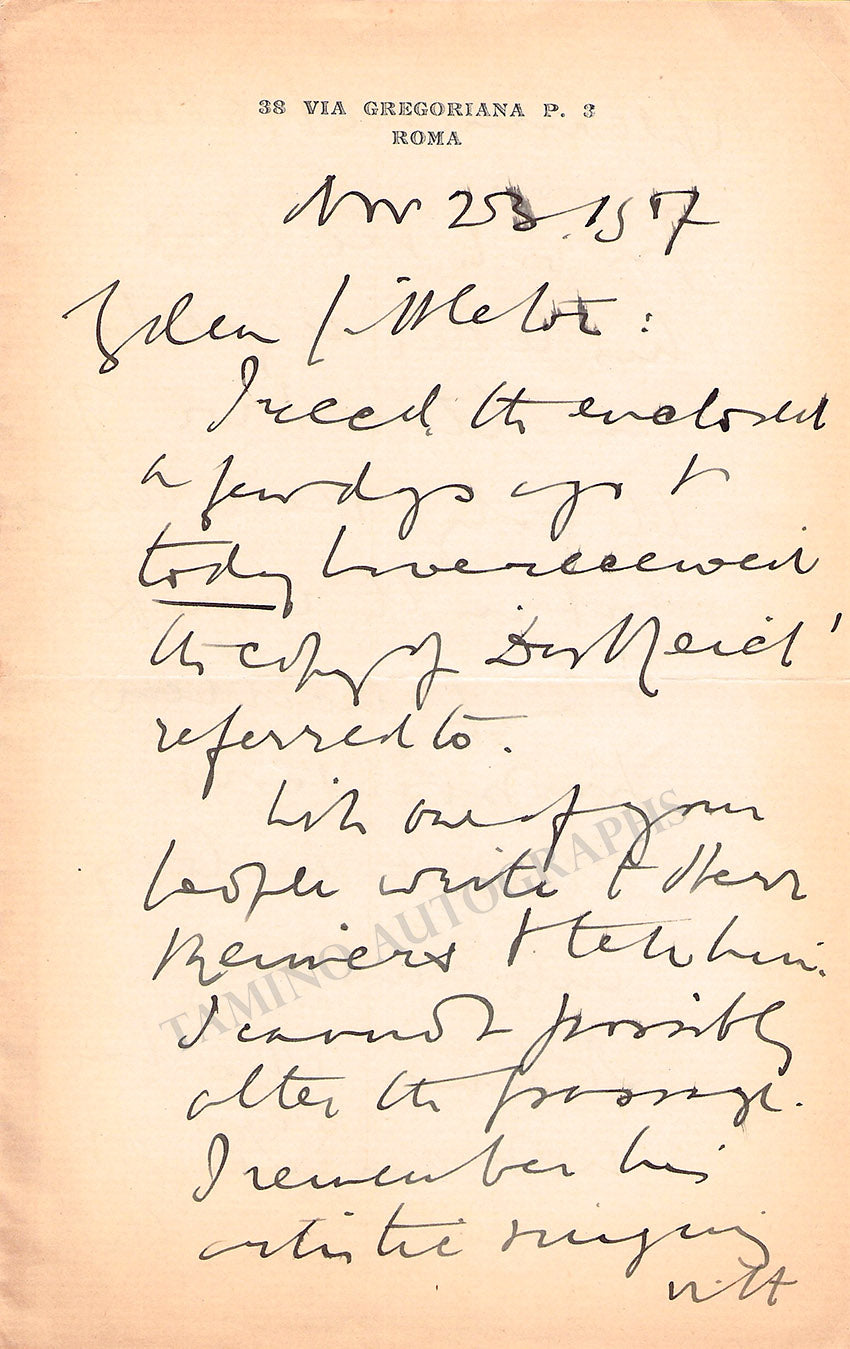 38 VIA GREGORIANA P. 3
ROMA
Nov 23 1907
My dear Littleton:
I recd. the enclosed
a few days ago &
today have received
the copy of 'Das Reich'
referred to.
Will one of your
people write to Herr
Reimers & tell him
I cannot possibly
alter the passage.
I remember his
artistic singing
with
TAMINO AUTOGRAPHS